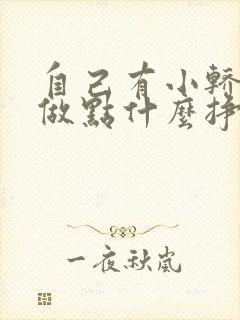 自己有小轎
做點什麼掙
一夜秋嵐